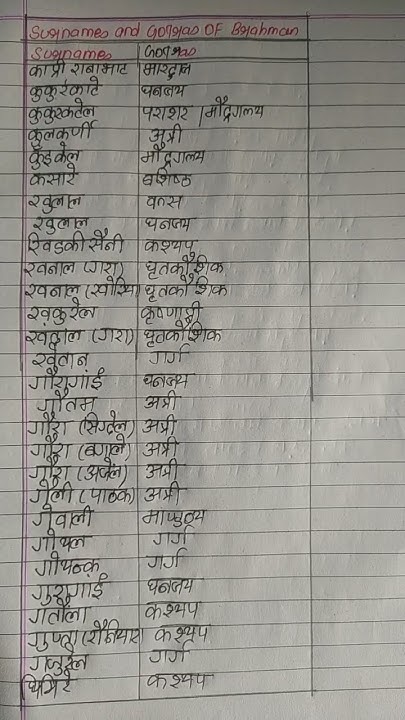 Surnames and Gotras OF Brahman
Surnames Gotras
काप्री राबाभाट भारद्वाज
कुकुरकाटे धनन्जय
कुकुरकटेल पराशर / मौद्गल्य
कुलकर्णी अत्री
कुँइकेल मौद्गल्य
कसारे वशिष्ठ
खुलाल वत्स
खुलाल धनन्जय
खिडकी सैनी कश्यप
खनाल (गरा) घृतकौशिक
खनाल (खोरिया) घृतकौशिक
खकुरेल कृष्णात्री
खत्नाल (गारा) घृतकौशिक
खेतान गर्ग
गौरागाई धनन्जय
गौतम अत्री
गौरा (सिग्देल) अत्री
गौरा (बगाले) अत्री
गौरा (अर्जेल) अत्री
गेली (पाठक) अत्री
गेवाली माण्डव्य
गोयल गर्ग
गोयन्का गर्ग
गुरागाई धनन्जय
गतौला कश्यप
गुप्ता (रौनियार) कश्यप
गजुरेल गर्ग
घिमिरे कश्यप